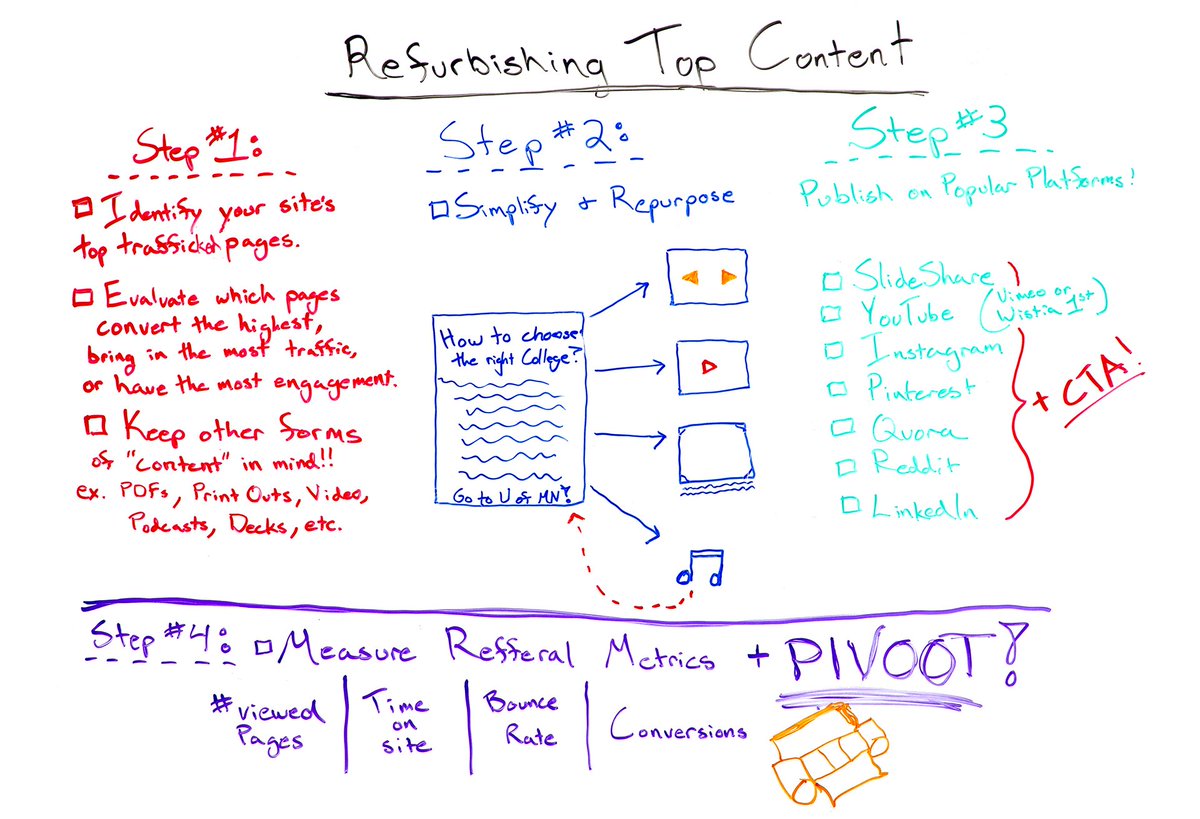 Refurbishing Top Content
Step #1:
☐ Identify your site's
top trafficked pages.
☐ Evaluate which pages
convert the highest,
bring in the most traffic,
or have the most engagement.
☐ Keep other forms
of "content" in mind!!
ex. PDFs, Print Outs, Video,
Podcasts, Decks, etc.
Step #2:
☐ Simplify + Repurpose
How to choose
the right College?
Go to U of MN!
Step #3
Publish on Popular Platforms!
☐ SlideShare
☐ YouTube (Vimeo or
Wistia 1st)
☐ Instagram
☐ Pinterest
☐ Quora
☐ Reddit
☐ LinkedIn
+ CTA!
Step #4: ☐ Measure Refferal Metrics + PIVOOT!
# Viewed
Pages
Time
on
site
Bounce
Rate
Conversions